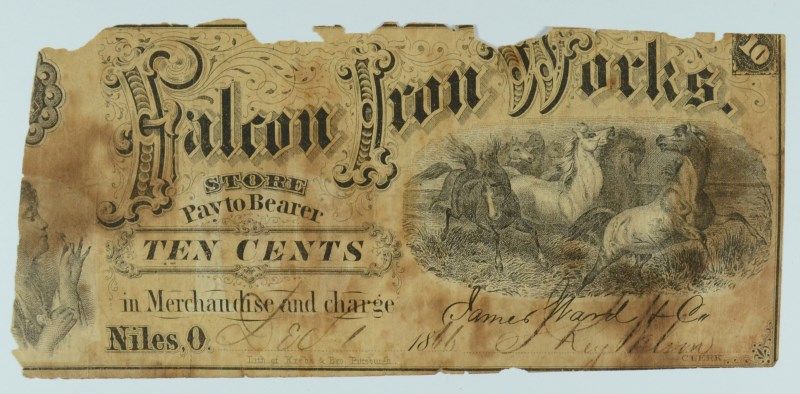 10
Falcon Iron Works.
STORE
Pay to Bearer
TEN CENTS
in Merchandise and charge
James Ward & Co
Niles, O. Dec 1 1866
CLERK
Lith of Krebs & Bro. Pittsburgh.